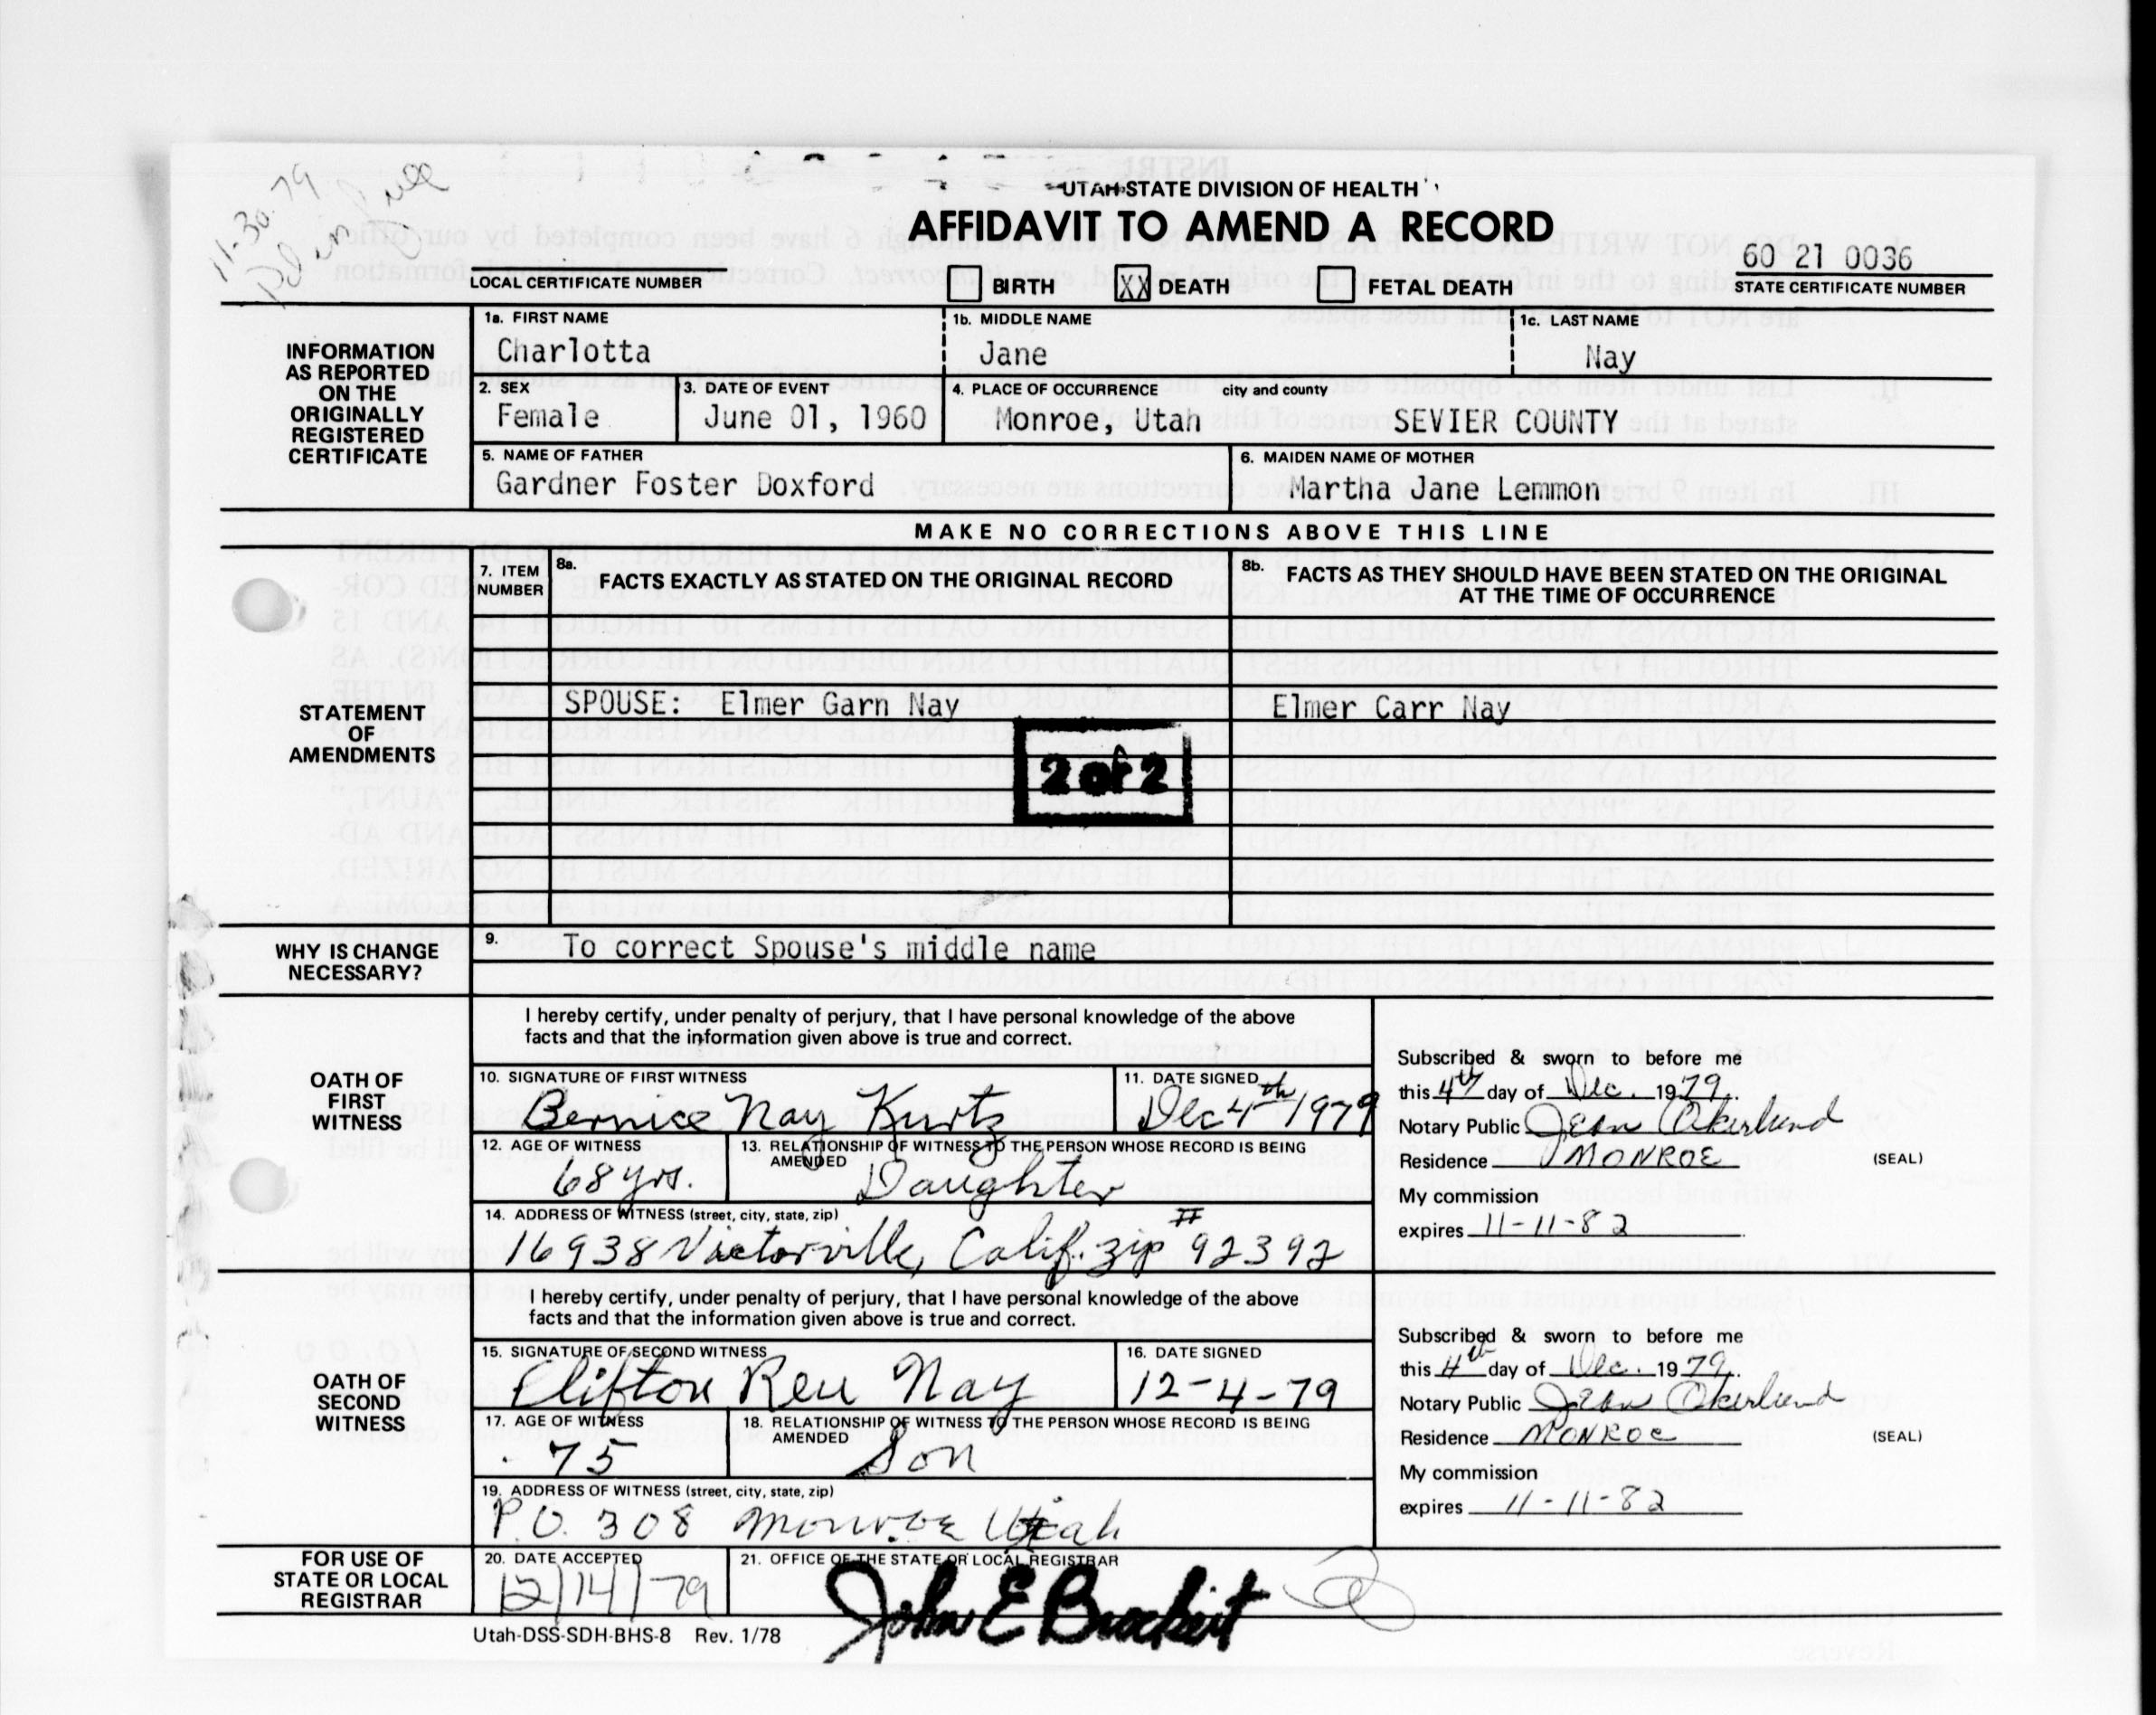 11-30-79
UTAH STATE DIVISION OF HEALTH
AFFIDAVIT TO AMEND A RECORD
60 21 0036
LOCAL CERTIFICATE NUMBER
BIRTH XX DEATH FETAL DEATH
STATE CERTIFICATE NUMBER
INFORMATION AS REPORTED ON THE ORIGINALLY REGISTERED CERTIFICATE
1a. FIRST NAME 1b. MIDDLE NAME 1c. LAST NAME
Charlotta Jane Nay
2. SEX 3. DATE OF EVENT 4. PLACE OF OCCURRENCE city and county
Female June 01, 1960 Monroe, Utah SEVIER COUNTY
5. NAME OF FATHER 6. MAIDEN NAME OF MOTHER
Gardner Foster Doxford Martha Jane Lemmon
MAKE NO CORRECTIONS ABOVE THIS LINE
STATEMENT OF AMENDMENTS
7. ITEM NUMBER
8a. FACTS EXACTLY AS STATED ON THE ORIGINAL RECORD
8b. FACTS AS THEY SHOULD HAVE BEEN STATED ON THE ORIGINAL
AT THE TIME OF OCCURRENCE
SPOUSE: Elmer Garn Nay Elmer Carr Nay
2 of 2
WHY IS CHANGE NECESSARY?
9. To correct Spouse's middle name
OATH OF FIRST WITNESS
I hereby certify, under penalty of perjury, that I have personal knowledge of the above
facts and that the information given above is true and correct.
10. SIGNATURE OF FIRST WITNESS 11. DATE SIGNED
Bernice Nay Kurtz Dec 4th 1979
12. AGE OF WITNESS 13. RELATIONSHIP OF WITNESS TO THE PERSON WHOSE RECORD IS BEING
AMENDED
68 yrs. Daughter
14. ADDRESS OF WITNESS (street, city, state, zip)
16938 Victorville, Calif. zip # 92392
Subscribed & sworn to before me
this 4th day of Dec. 1979.
Notary Public Jean Okerlund
Residence MONROE (SEAL)
My commission
expires 11-11-82
OATH OF SECOND WITNESS
I hereby certify, under penalty of perjury, that I have personal knowledge of the above
facts and that the information given above is true and correct.
15. SIGNATURE OF SECOND WITNESS 16. DATE SIGNED
Clifton Reu Nay 12-4-79
17. AGE OF WITNESS 18. RELATIONSHIP OF WITNESS TO THE PERSON WHOSE RECORD IS BEING
AMENDED
75 Son
19. ADDRESS OF WITNESS (street, city, state, zip)
P.O. 308 Monroe Utah
Subscribed & sworn to before me
this 4th day of Dec. 1979.
Notary Public Jean Okerlund
Residence MONROE (SEAL)
My commission
expires 11-11-82
FOR USE OF STATE OR LOCAL REGISTRAR
20. DATE ACCEPTED 21. OFFICE OF THE STATE OR LOCAL REGISTRAR
12/14/79 John E Brockert
Utah-DSS-SDH-BHS-8 Rev. 1/78